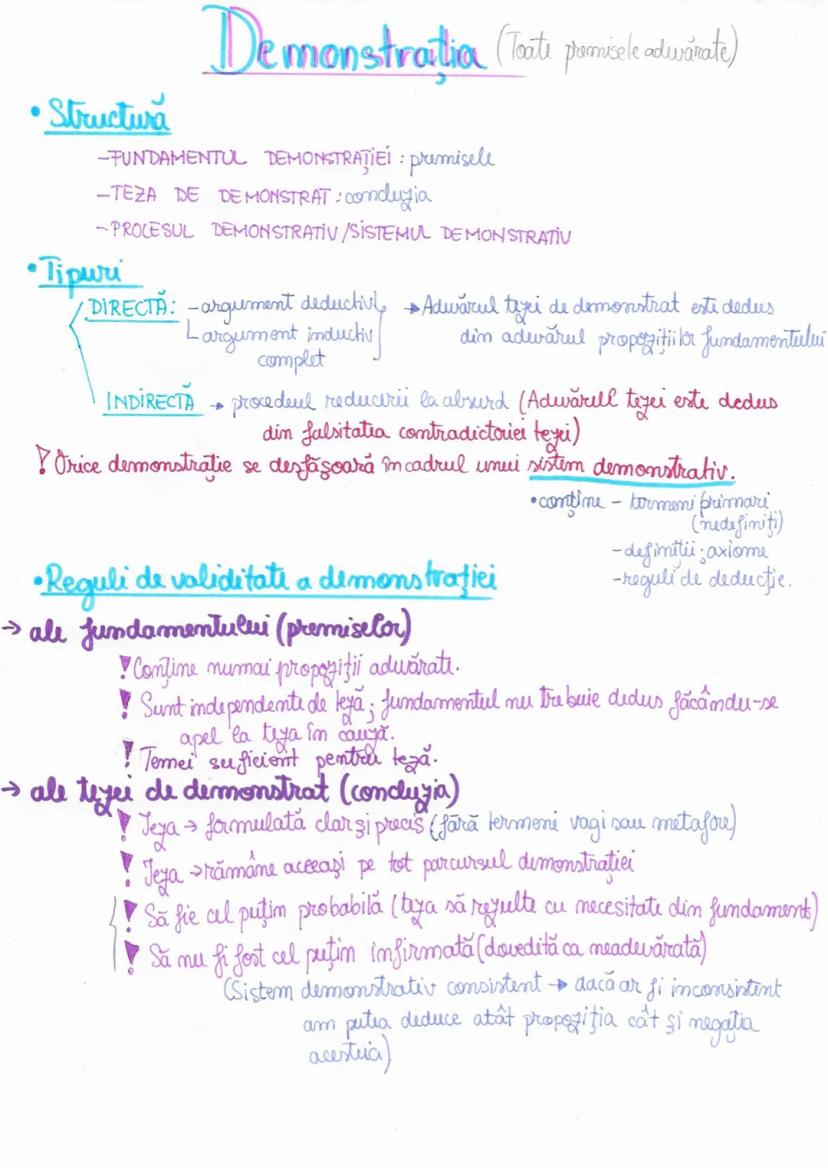 Demonstrația (Toate premisele adevărate)
• Structură
-FUNDAMENTUL DEMONSTRAȚIEI: premisele
-TEZA DE DEMONSTRAT: concluzia
-PROCESUL DEMONSTRATIV/SISTEMUL DEMONSTRATIV
• Tipuri
DIRECTĂ: -argument deductiv → Adevărul tezei de demonstrat este dedus
argument inductiv din adevărul propozițiilor fundamentului
complet
INDIRECTĂ → procedeul reducerii la absurd (Adevărul tezei este dedus
din falsitatea contradictoriei tezei)
! Orice demonstrație se desfășoară în cadrul unui sistem demonstrativ.
• conține - termeni primari
(nedefiniți)
-definiții; axiome
-reguli de deducție.
• Reguli de validitate a demonstrației
→ ale fundamentului (premiselor)
! Conține numai propoziții adevărate.
! Sunt independente de teză; fundamentul nu trebuie dedus făcându-se
apel la teza în cauză.
! Temei suficient pentru teză.
→ ale tezei de demonstrat (concluzia)
! Teza → formulată clar și precis (fără termeni vagi sau metafore)
! Teza → rămâne aceeași pe tot parcursul demonstrației
! Să fie cel puțin probabilă (teza să rezulte cu necesitate din fundament)
! Să nu fi fost cel puțin infirmată (dovedită ca neadevărată)
(Sistem demonstrativ consistent → dacă ar fi inconsistent
am putea deduce atât propoziția cât și negația
acesteia)